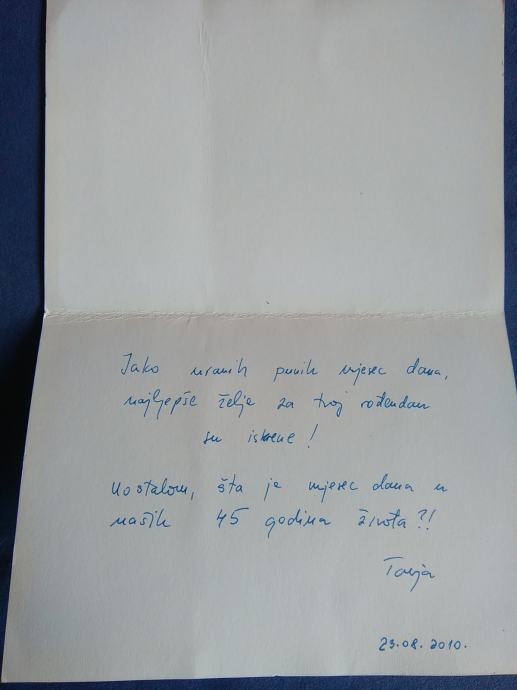 Iako uranih punih mjesec dana,
najljepše želje za tvoj rođendan
su iskrene!
Uostalom, šta je mjesec dana u
naših 45 godina života?!
Tanja
23.08.2010.